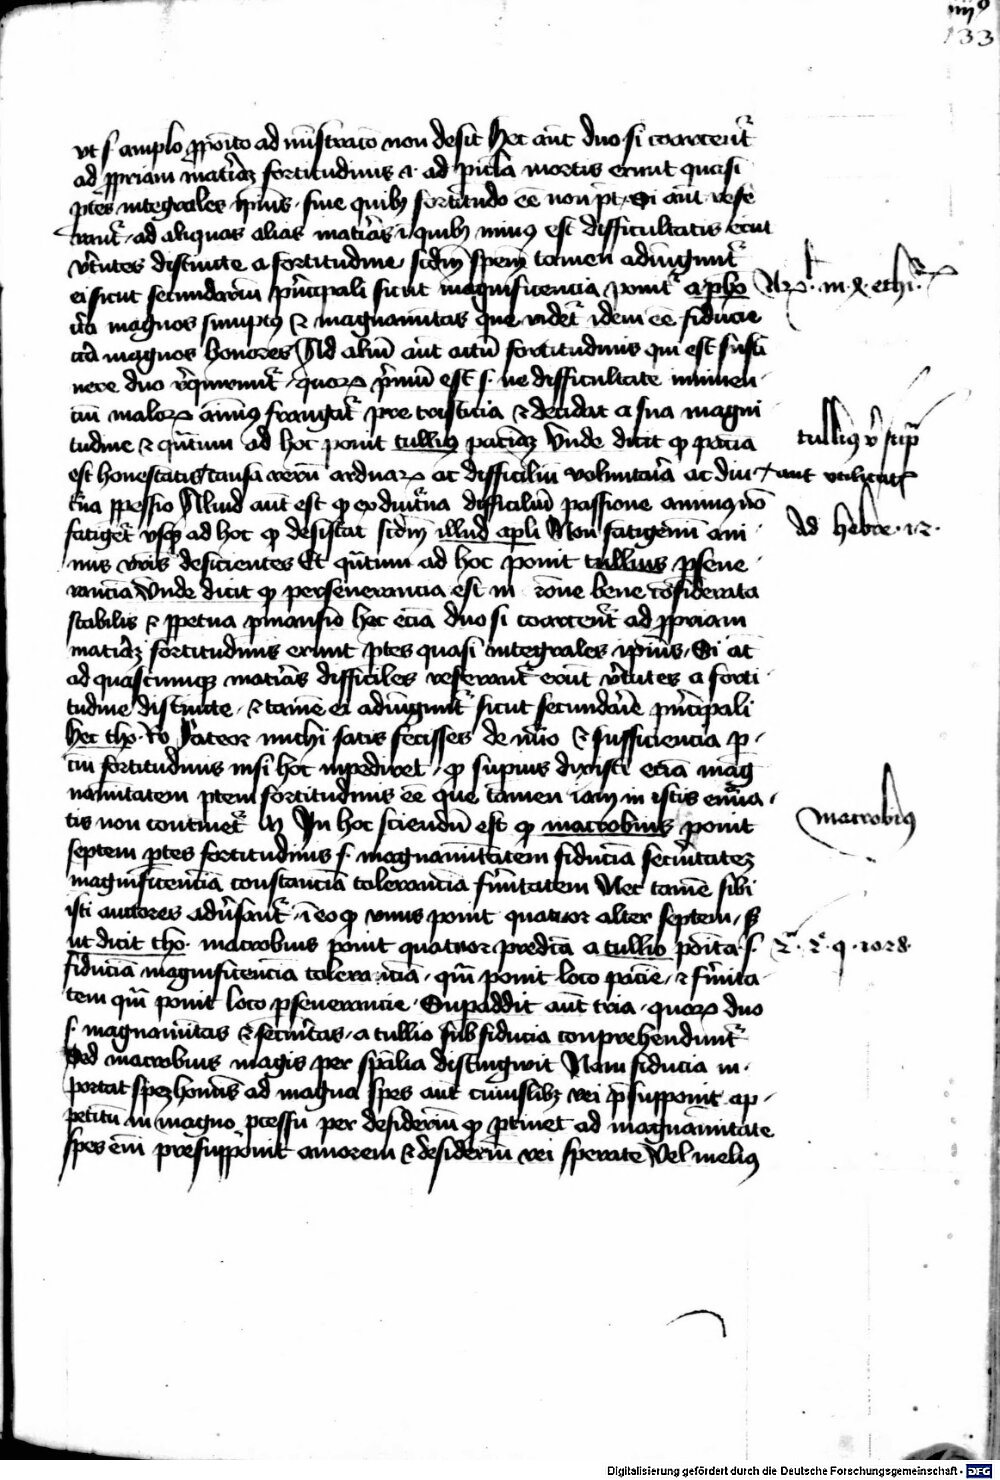 133
vt s. amplo proposito ad ministracio non desit Hec aut duo si coartent
ad ppriam matiaz fortitudinis .i. ad picla mortis erunt quasi
ptes integrales ipius . sine quibz fortitudo ee non pt . Si aut refe
rant ad aliquas alias matias i quibz minus est difficultatis erut
vtutes distincte a fortitudine scdm spem tamen adiungunt
ei sicut secundarm principali sicut magnificencia ponit a pho
circa magnos sumptus et magnanimitas que videt idem ee fiducie
circa magnos honores Ad alium aut actum fortitudinis qui est susti
nere duo requirunt . quorum primum est s. ne difficultate iminen
cium malorum animus frangat pre tristicia et decidat a sua magni
tudine et quantum ad hoc ponit tullius paciaz vnde dicit quod pacia
est honestatis causa rerum arduarum ac difficilium voluntaria ac diu
tina ppessio Aliud aut est quod ex diutina difficilium passione animus non
fatiget usque ad hoc quod desistat scdm illud apli Non fatigemini ani
mis vris deficientes Et quantum ad hoc ponit tullius pseue
rancia vnde dicit quod perseuerancia est in rone bene considerata
stabilis et ppetua pmansio hec ecia duo si coartent ad ppriam
matiaz fortitudinis erunt ptes quasi integrales ipius . Si at
ad quascumque matias difficiles referant erunt vtutes a forti
tudine distincte . et tamen ei adiungunt sicut secundarie principali
hec tho. Fateor michi satis fecisses de numero et sufficiencia p
cium fortitudinis nisi hoc inpediret . quod supius dixisti ecia mag
nanimitatem ptem fortitudinis ee que tamen iam in istis
tis non continet In hoc sciendum est quod macrobius ponit
septem ptes fortitudinis s. magnanimitatem fiduciam securitatez
magnificenciam constanciam toleranciam firmitatem Nec tamen sibi
isti auctores adusant . i eo quod vnus ponit quatuor alter septem . s
ut dicit tho. macrobius ponit quatuor predicta a tullio posita s.
fiduciam magnificenciam tolera ncia . quam ponit loco pacie . et firmita
tem quam ponit loco pseuerancie . Supaddit aut tria . quorum duo
s. magnanimitas et securitas . a tullio sub fiducia conprehendunt
Sed macrobius magis per spalia distinguit Nam fiducia in
portat spez hominis ad magna spes aut cuiuslibz rei psupponit ap
petitum in magno pcessu per desiderium quod ptinet ad magnanimitate
spes eni presupponit amorem et desiderium rei sperate vel melius
ethi.
tullius v sup
aut vtilitatis
Ad hebre. 12.
macrobius
2. 2. q. 1028.
Digitalisierung gefördert durch die Deutsche Forschungsgemeinschaft - DFG